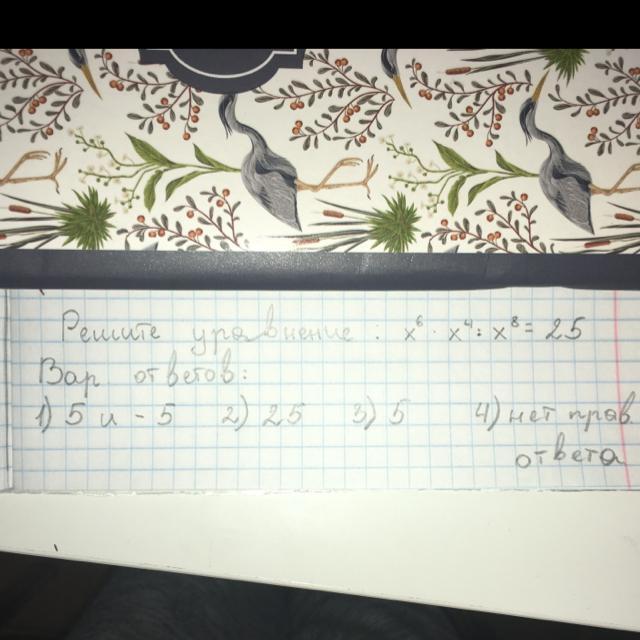 Решите уравнение : x⁶ · x⁴ : x⁸ = 25
Вар ответов:
1) 5 и - 5 2) 25 3) 5 4) нет прав.
ответа